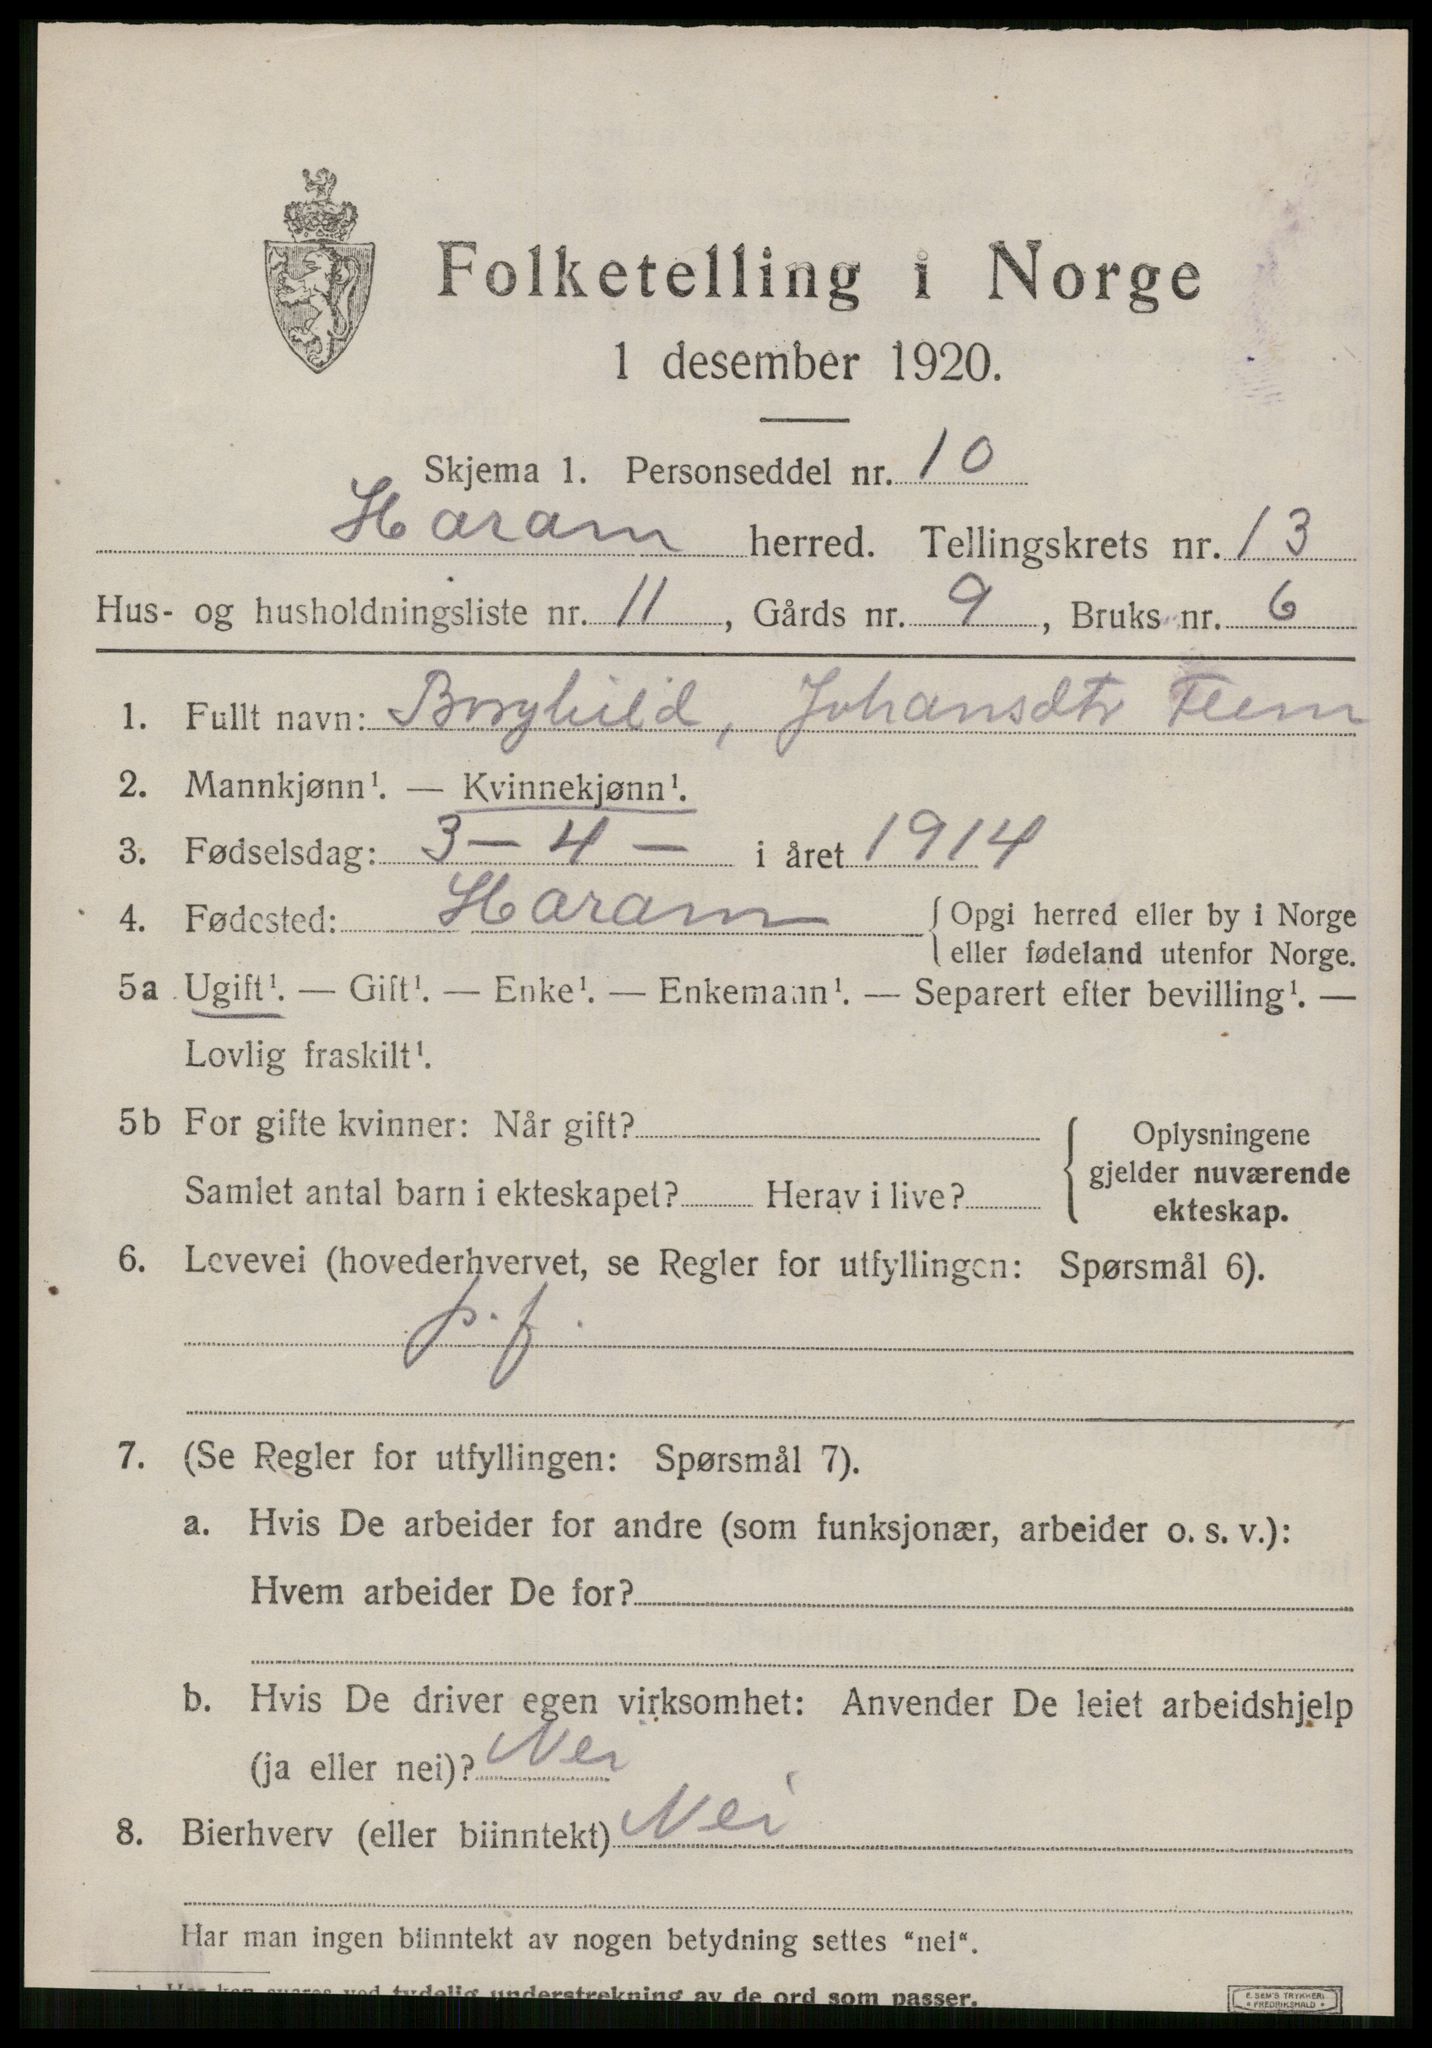 Folketelling i Norge
1 desember 1920.
Skjema 1. Personseddel nr. 10
Haram herred. Tellingskrets nr. 13
Hus- og husholdningsliste nr. 11, Gårds nr. 9, Bruks nr. 6
1. Fullt navn: Borghild, Johansdtr Flem
2. Mannkjønn¹. — Kvinnekjønn¹.
3. Fødselsdag: 3 - 4 - i året 1914
4. Fødested: Haram { Opgi herred eller by i Norge
eller fødeland utenfor Norge.
5a Ugift¹. — Gift¹. — Enke¹. — Enkemann¹. — Separert efter bevilling¹. —
Lovlig fraskilt¹.
5b For gifte kvinner: Når gift?
Samlet antal barn i ekteskapet? Herav i live?
Oplysningene
gjelder nuværende
ekteskap.
6. Levevei (hovederhvervet, se Regler for utfyllingen: Spørsmål 6).
p. f.
7. (Se Regler for utfyllingen: Spørsmål 7).
a. Hvis De arbeider for andre (som funksjonær, arbeider o. s. v.):
Hvem arbeider De for?
b. Hvis De driver egen virksomhet: Anvender De leiet arbeidshjelp
(ja eller nei)? Nei
8. Bierhverv (eller biinntekt) Nei
Har man ingen biinntekt av nogen betydning settes "nei".
1 Her kan svares ved tydelig understrekning av de ord som passer.
E. SEM'S TRYKKERI
* FREDRIKSHALD *